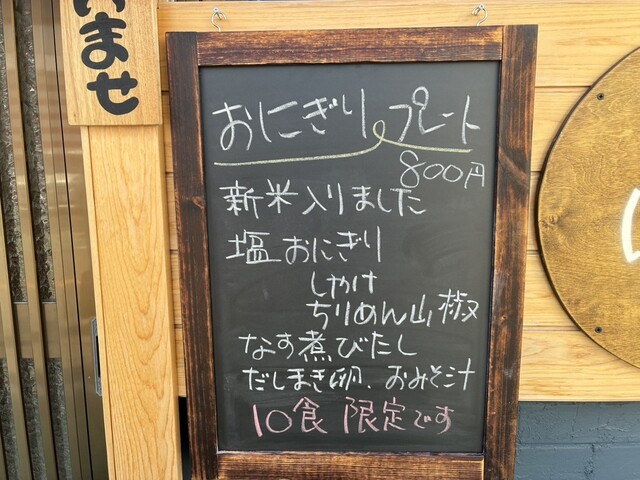 ませ
おにぎりプレート
800円
新米入りました
塩おにぎり
しゃけ
ちりめん山椒
なす煮びたし
だしまき卵、おみそ汁
10食 限定です